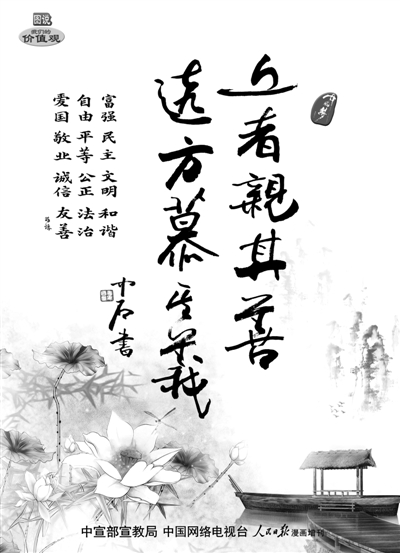 图说
我们的
价值观
近者親其善
遠方慕其義
中石書
富强 民主 文明 和谐
自由 平等 公正 法治
爱国 敬业 诚信 友善
中宣部宣教局 中国网络电视台 人民日报 漫画增刊